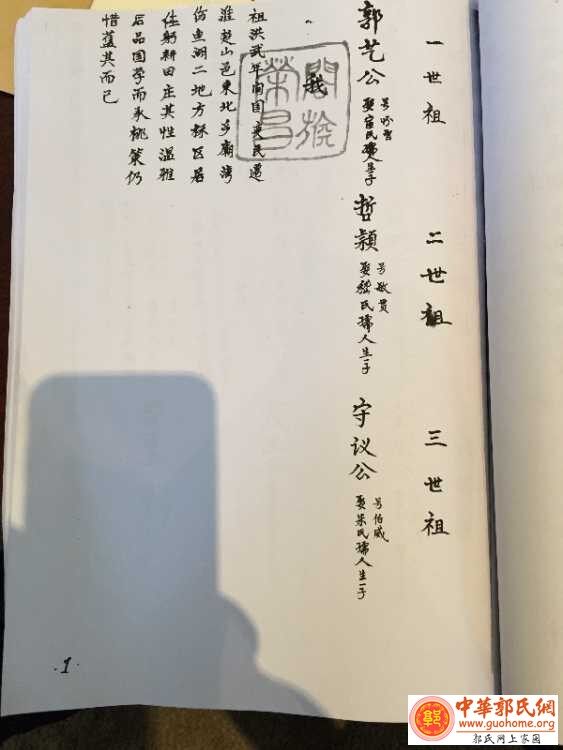 一世祖
二世祖
三世祖
郭艺公
妻 氏孺人生子
哲颖
号敏贯
妻嵇氏孺人生一子
守议公
号伯威
妻朱氏孺人生一子
我
祖洪武年间国 民遷
淮 山邑東北乡廟湾
仿魚湖二地方 区居
住躬耕田庄其性温雅
后品国学而承桃 仍
惜 其而已
·1·
中華郭氏網
www.guohome.org
郭氏网上家园